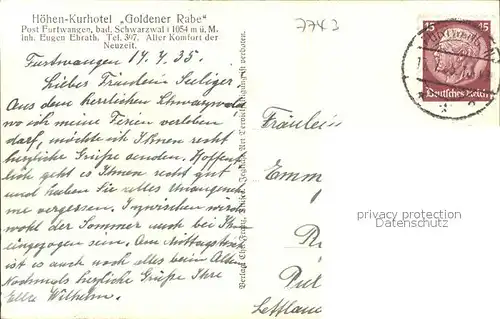 Höhen-Kurhotel „Goldener Rabe"
Post Furtwangen, bad. Schwarzwald 1054 m ü. M.
Inh. Eugen Ehrath. Tel. 307. Aller Komfort der
Neuzeit.
7743
Furtwangen 17.7.35.
Liebes Fräulein Seeliger,
Aus dem herrlichen Schwarzwald,
wo ich meine Ferien verleben
darf, möchte ich Ihnen recht
herzliche Grüße senden. Hoffent-
lich geht es Ihnen recht gut
und haben Sie alles Unangeneh-
me vergessen. Inzwischen wird
wohl der Sommer auch bei Ihnen
eingezogen sein. Am
ist es auch noch alles beim Alten.
Nochmals herzliche Grüße Ihre
Elle Wilhelm.
15
Deutsches Reich
Fräulein
Emm
Ri
Pul
Lettland
privacy protection
Datenschutz